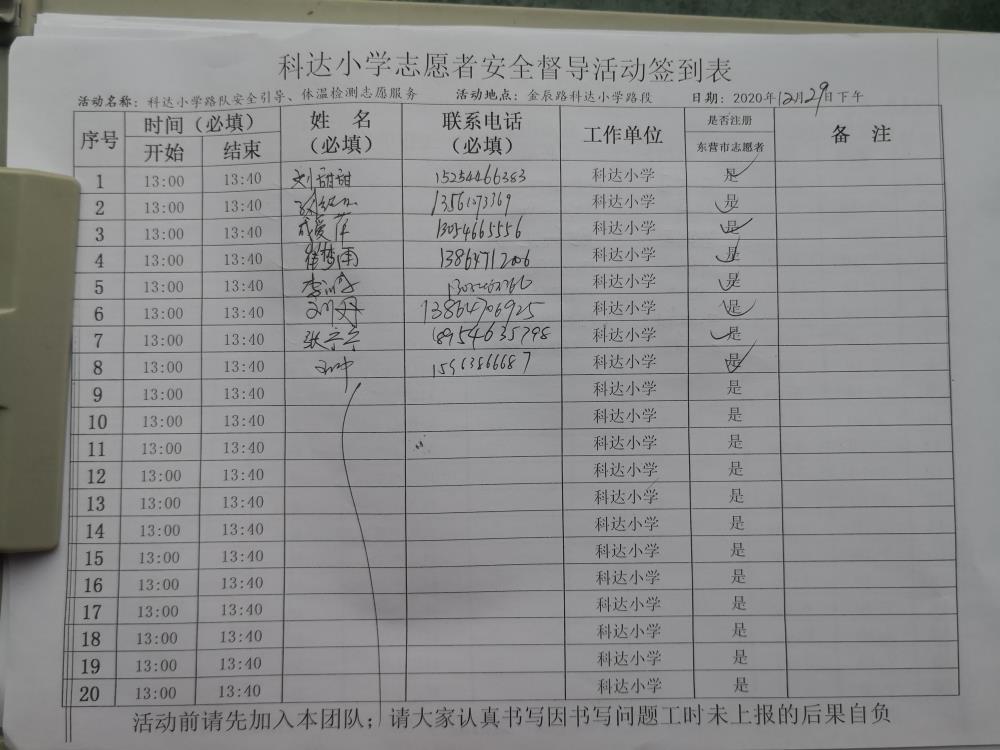 科达小学志愿者安全督导活动签到表
活动名称：科达小学路队安全引导、体温检测志愿服务 活动地点：金辰路科达小学路段 日期：2020年12月29日下午
序号 时间（必填） 姓 名（必填） 联系电话（必填） 工作单位 是否注册 备 注
开始 结束 东营市志愿者
1 13:00 13:40 刘甜甜 15254466383 科达小学 是
2 13:00 13:40 13561073369 科达小学 是
3 13:00 13:40 13054665556 科达小学 是
4 13:00 13:40 崔梦雨 13864712006 科达小学 是
5 13:00 13:40 科达小学 是
6 13:00 13:40 13864706925 科达小学 是
7 13:00 13:40 张六六 18954635798 科达小学 是
8 13:00 13:40 15963866687 科达小学 是
9 13:00 13:40 科达小学 是
10 13:00 13:40 科达小学 是
11 13:00 13:40 科达小学 是
12 13:00 13:40 科达小学 是
13 13:00 13:40 科达小学 是
14 13:00 13:40 科达小学 是
15 13:00 13:40 科达小学 是
16 13:00 13:40 科达小学 是
17 13:00 13:40 科达小学 是
18 13:00 13:40 科达小学 是
19 13:00 13:40 科达小学 是
20 13:00 13:40 科达小学 是
活动前请先加入本团队；请大家认真书写因书写问题工时未上报的后果自负